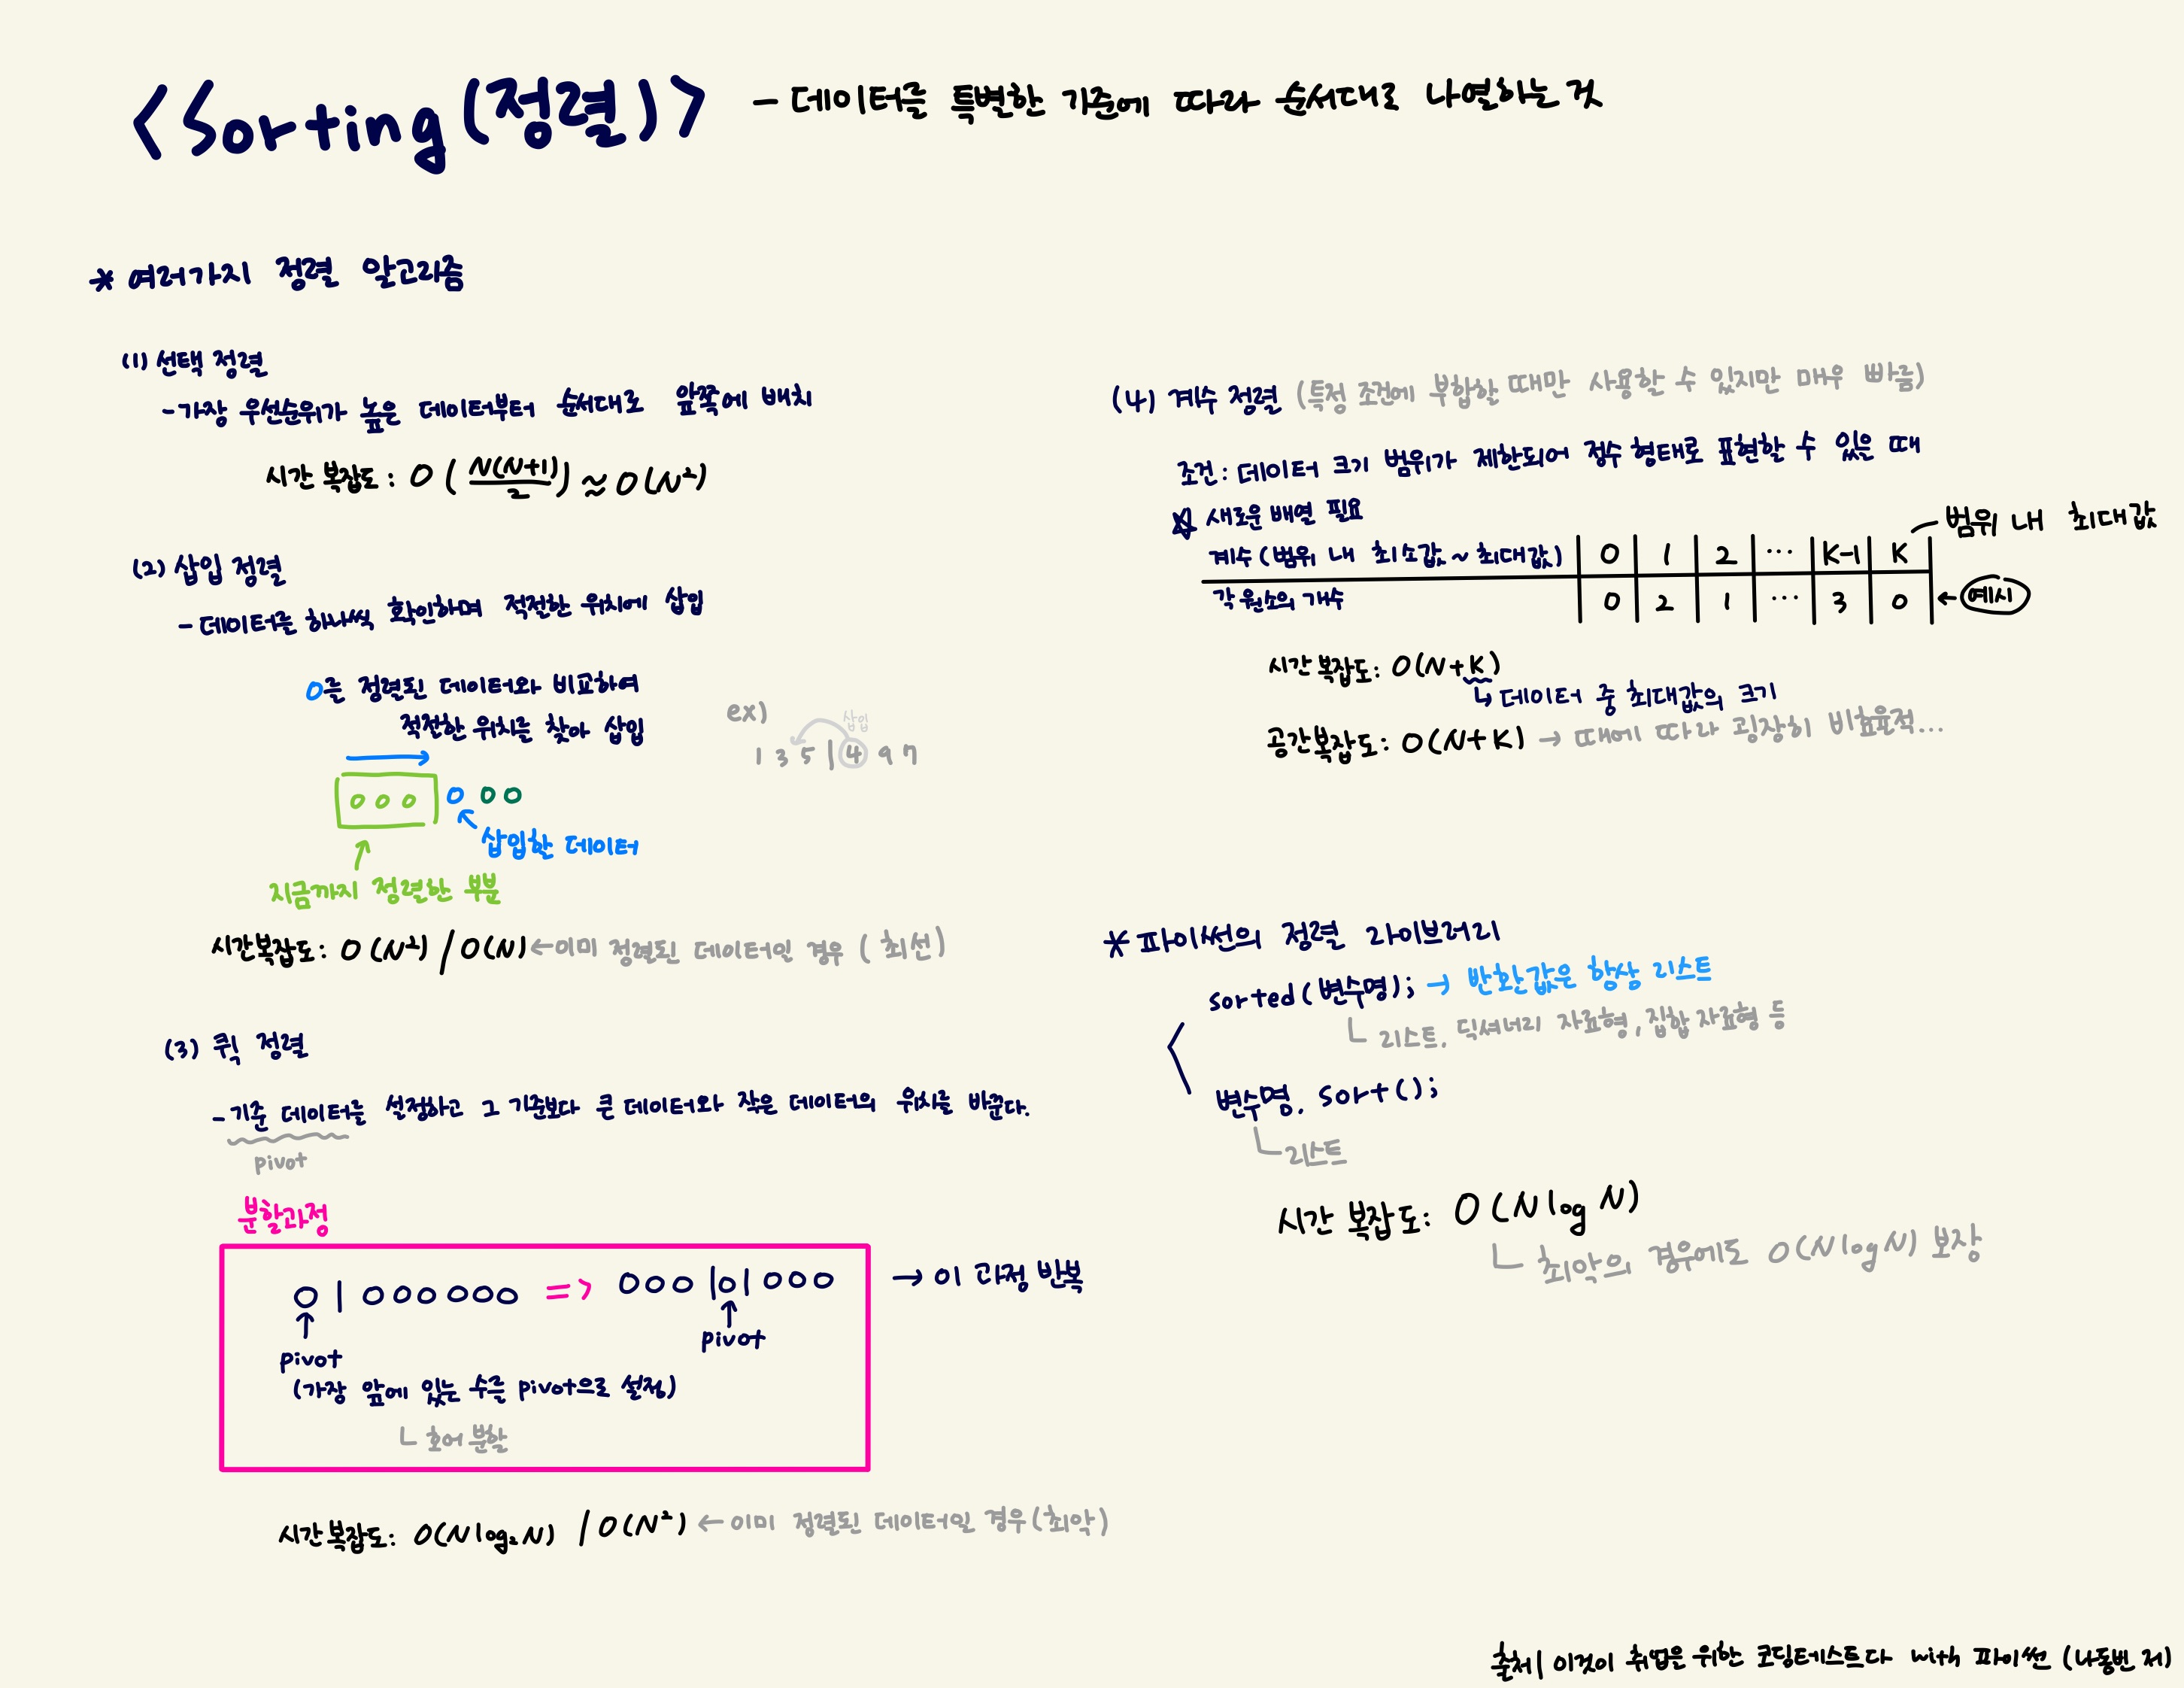 <Sorting(정렬)> - 데이터를 특별한 기준에 따라 순서대로 나열하는 것
* 여러가지 정렬 알고리즘
(1) 선택 정렬
- 가장 우선순위가 높은 데이터부터 순서대로 앞쪽에 배치
시간 복잡도: O(N(N+1)/2) ≈ O(N²)
(2) 삽입 정렬
- 데이터를 하나씩 확인하며 적절한 위치에 삽입
O를 정렬된 데이터와 비교하여
적절한 위치를 찾아 삽입
ex)
삽입
1 3 5 | 4 9 7
o o o o o o
삽입한 데이터
지금까지 정렬한 부분
시간복잡도: O(N²) / O(N) ← 이미 정렬된 데이터일 경우 (최선)
(3) 퀵 정렬
- 기준 데이터를 설정하고 그 기준보다 큰 데이터와 작은 데이터의 위치를 바꾼다.
pivot
분할과정
o | o o o o o o => o o o | o | o o o → 이 과정 반복
pivot
pivot
(가장 앞에 있는 수를 pivot으로 설정)
ㄴ 호어 분할
시간복잡도: O(N log₂ N) / O(N²) ← 이미 정렬된 데이터일 경우(최악)
(4) 계수 정렬 (특정 조건에 부합할 때만 사용할 수 있지만 매우 빠름)
조건: 데이터 크기 범위가 제한되어 정수 형태로 표현할 수 있을 때
☆ 새로운 배열 필요
범위 내 최대값
계수 (범위 내 최소값 ~ 최대값) | 0 | 1 | 2 | ... | K-1 | K
각 원소의 개수 | 0 | 2 | 1 | ... | 3 | 0 ← 예시
시간 복잡도: O(N+K)
↳ 데이터 중 최대값의 크기
공간복잡도: O(N+K) → 때에 따라 굉장히 비효율적...
* 파이썬의 정렬 라이브러리
sorted(변수명); → 반환값은 항상 리스트
ㄴ 리스트, 딕셔너리 자료형, 집합 자료형 등
변수명. sort();
ㄴ 리스트
시간 복잡도: O(N log N)
ㄴ 최악의 경우에도 O(N log N) 보장
출처| 이것이 취업을 위한 코딩테스트다 with 파이썬 (나동빈 저)